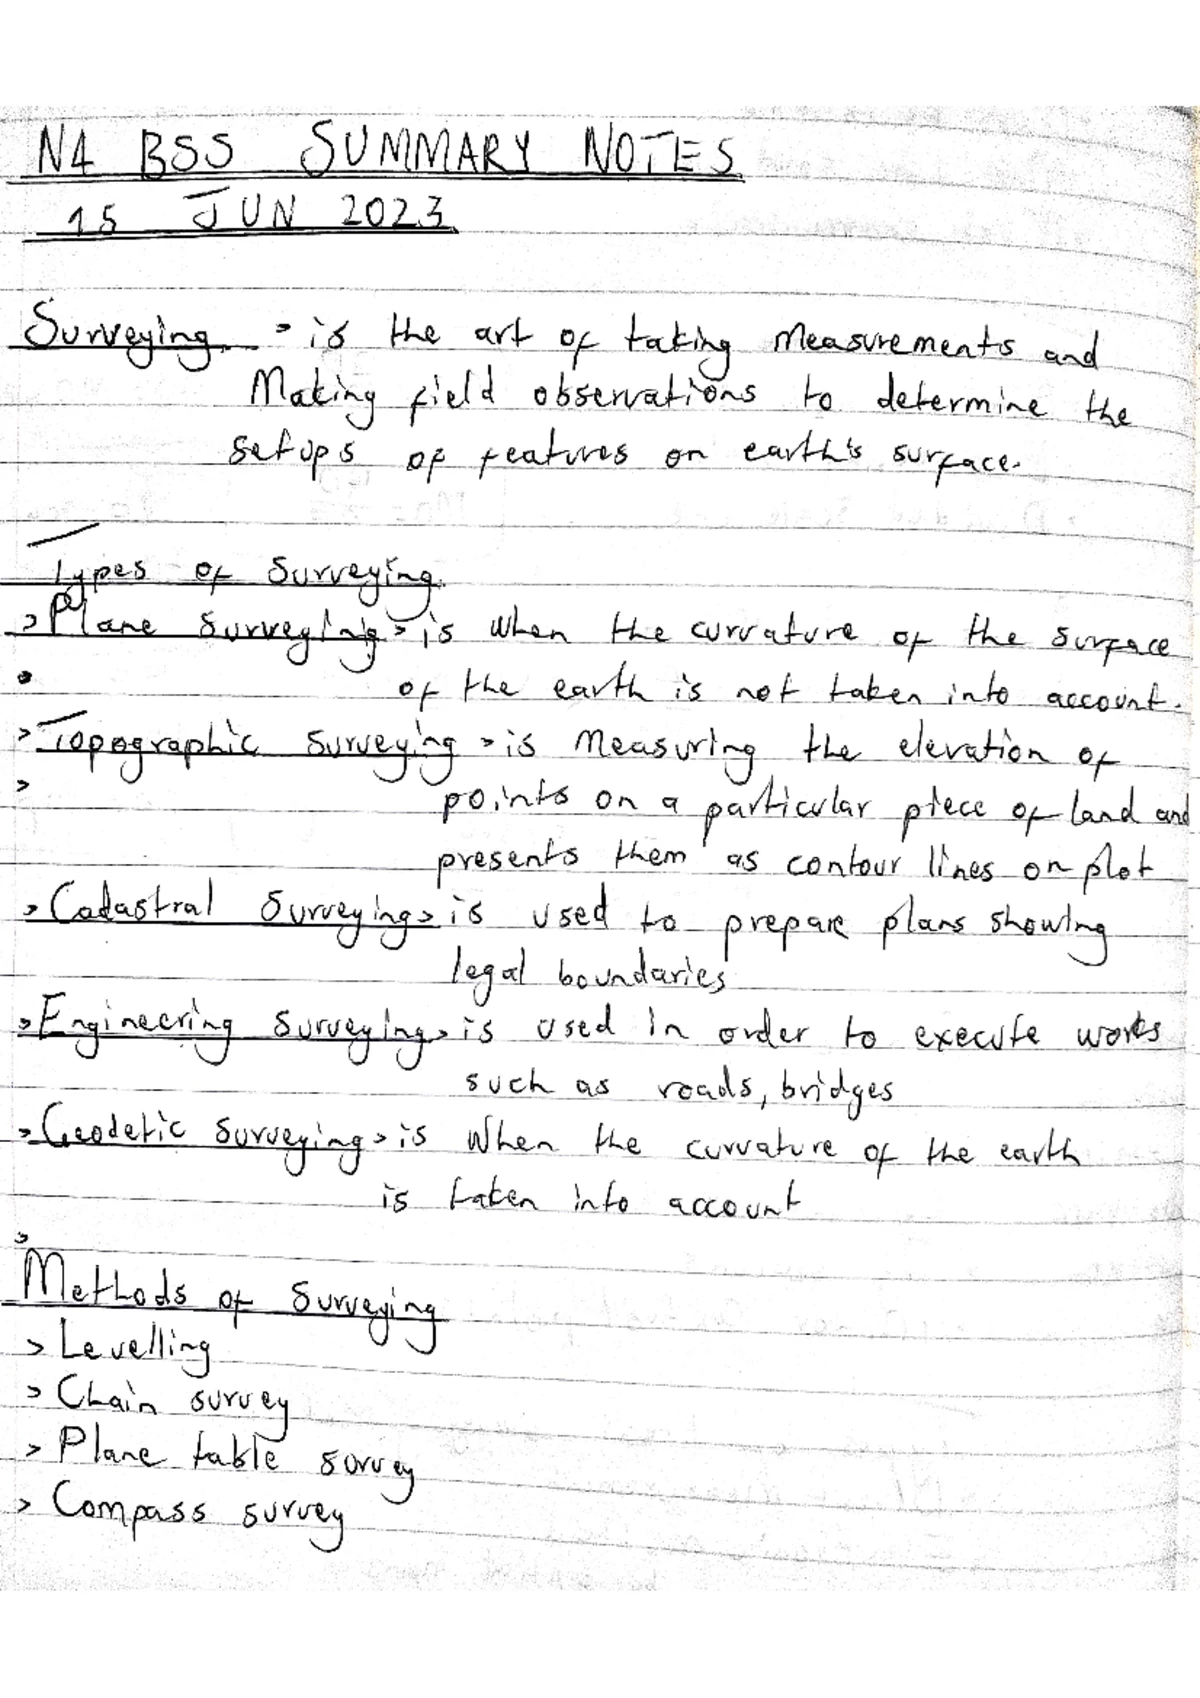 N4 BSS SUMMARY NOTES
15 JUN 2023
Surveying > is the art of taking Measurements and
Making field observations to determine the
setups of features on earth's surface.
Types of Surveying
> Plane Surveying > is when the curvature of the surface
of the earth is not taken into account.
> Topographic Surveying > is Measuring the elevation of
>
points on a particular piece of land and
presents them as contour lines on plot
> Cadastral Surveying > is used to prepare plans showing
legal boundaries
> Engineering Surveying > is used in order to execute works
such as roads, bridges
> Geodetic Surveying > is When the curvature of the earth
is taken into account
>
Methods of Surveying
> Levelling
> Chain survey
> Plane table survey
> Compass survey